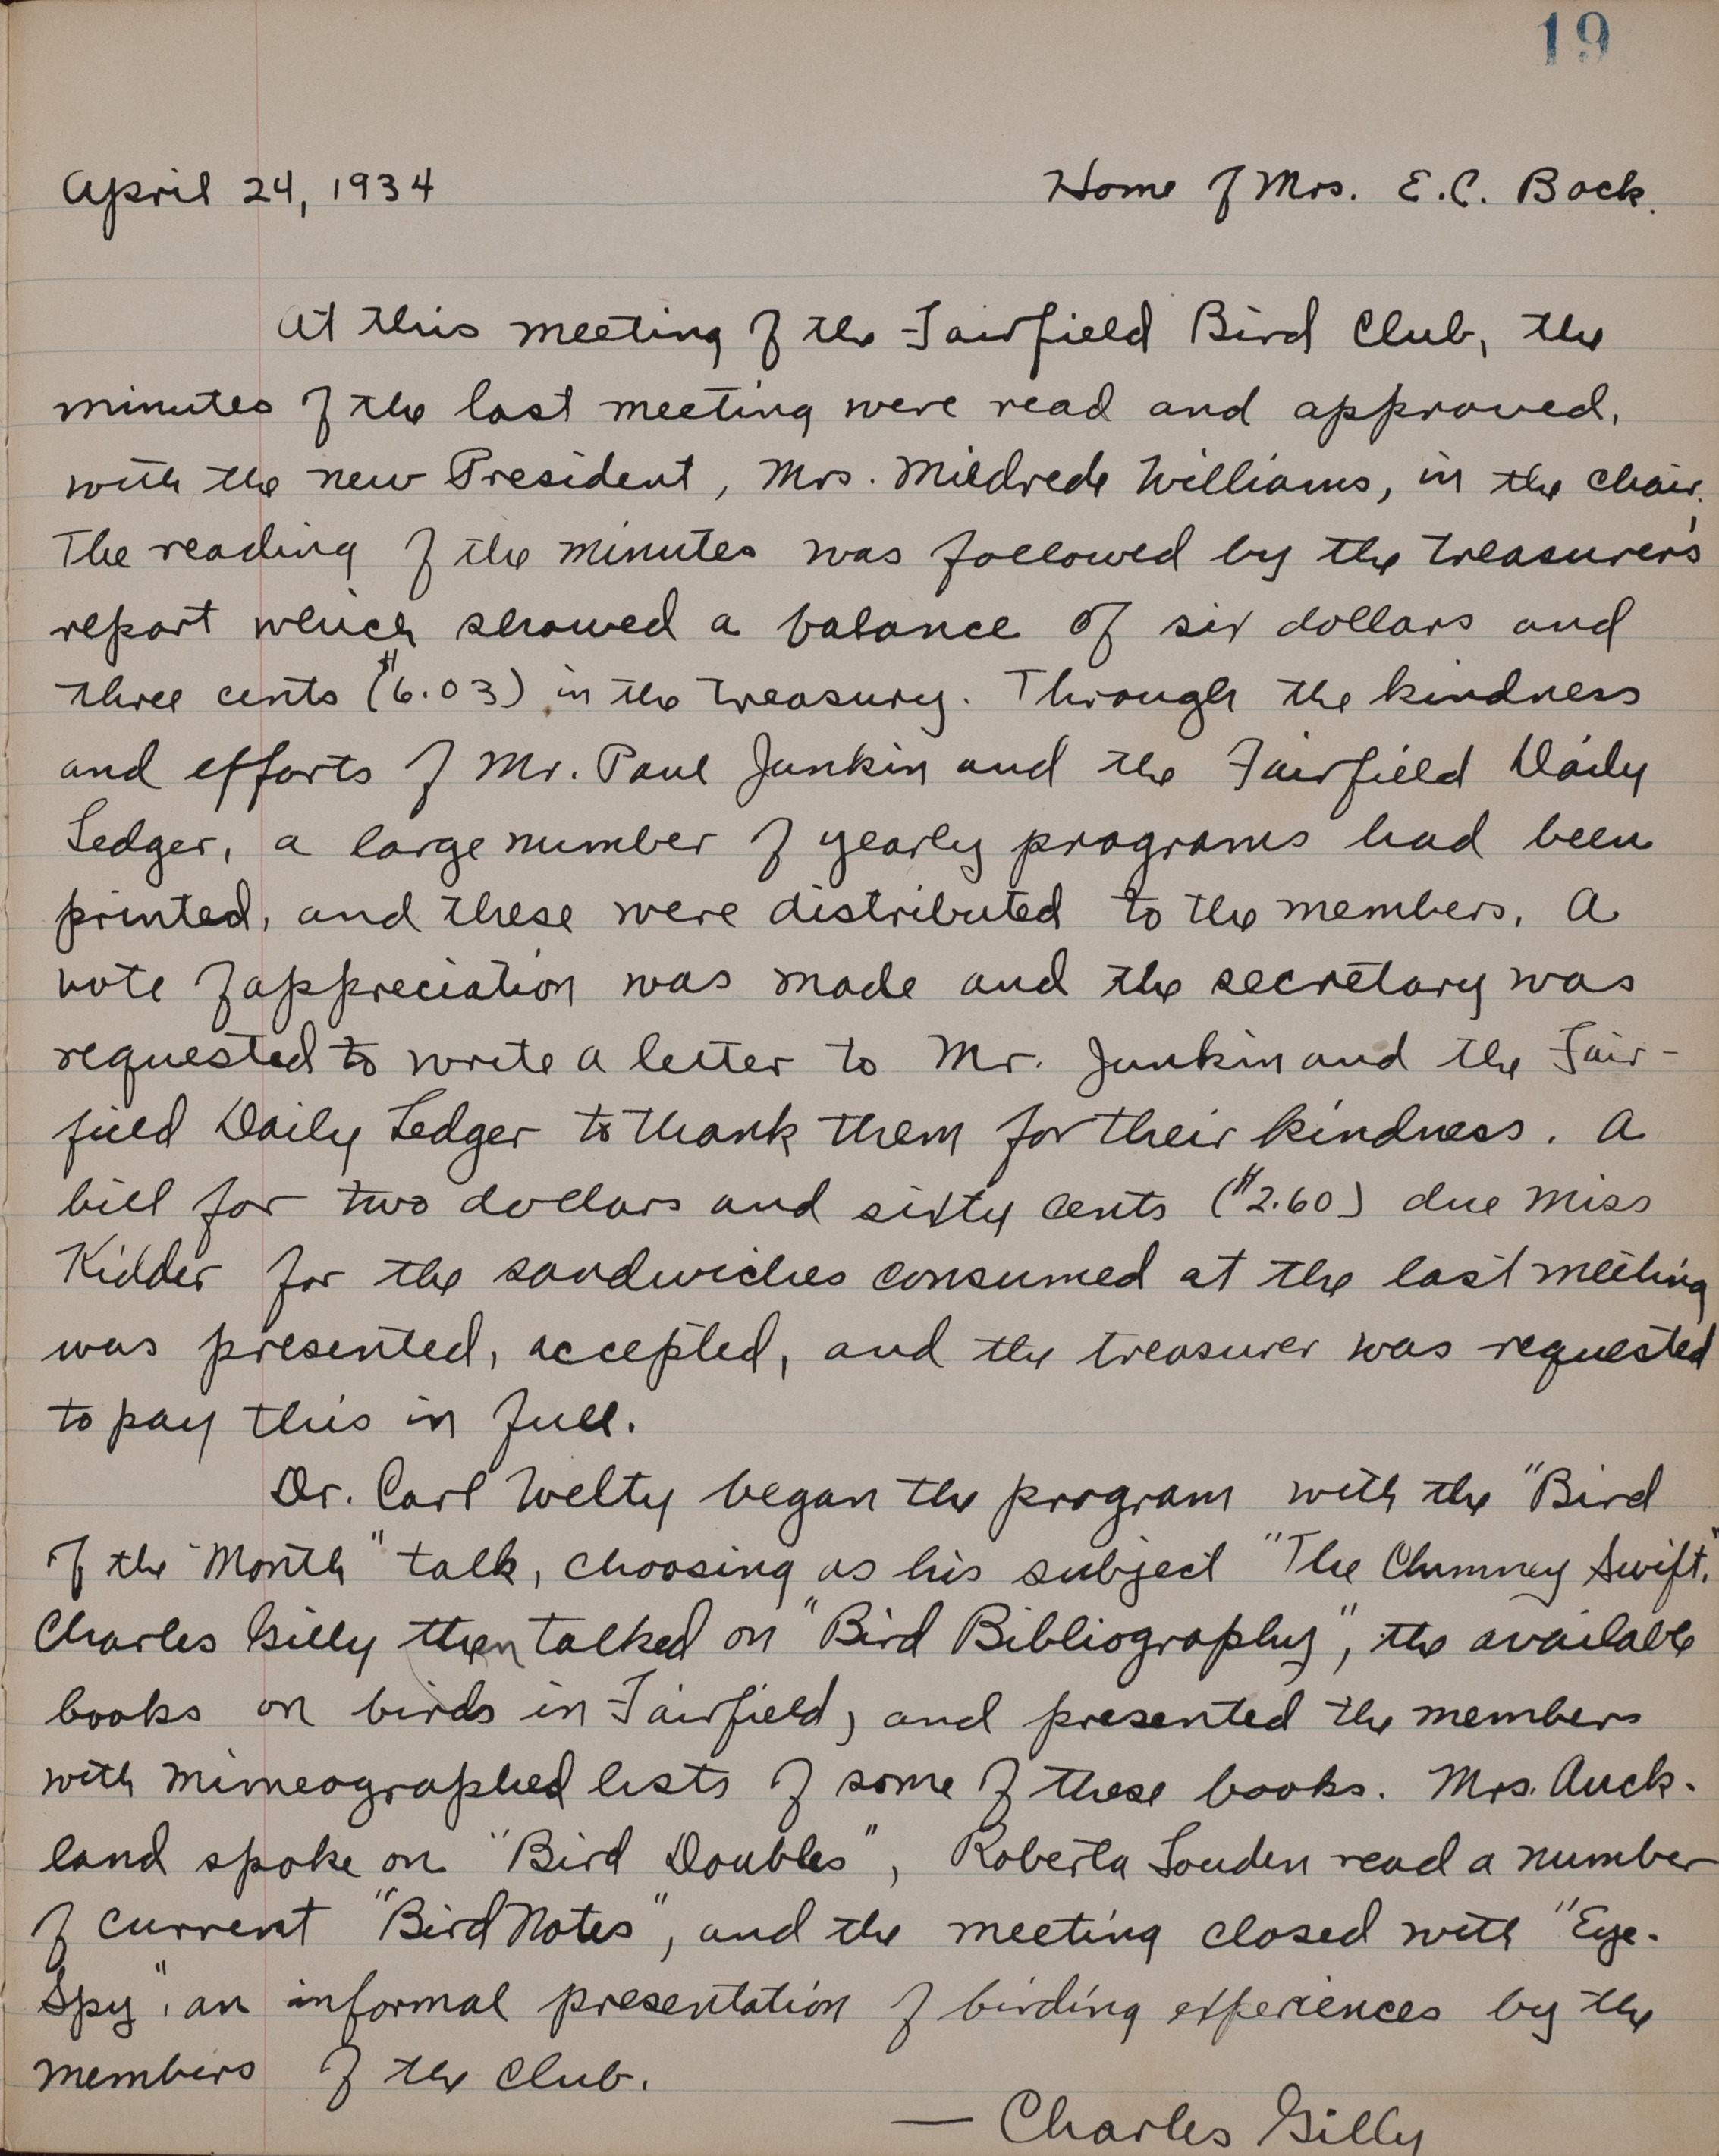 19
April 24, 1934 Home of Mrs. E.C. Bock.
At this meeting of the Fairfield Bird Club, the
minutes of the last meeting were read and approved,
with the new President, Mrs. Mildrede Williams, in the chair.
The reading of the minutes was followed by the treasurer's
report which showed a balance of six dollars and
three cents ($6.03) in the treasury. Through the kindness
and efforts of Mr. Paul Junkin and the Fairfield Daily
Ledger, a large number of yearly programs had been
printed, and these were distributed to the members. A
vote of appreciation was made and the secretary was
requested to write a letter to Mr. Junkin and the Fair-
field Daily Ledger to thank them for their kindness. A
bill for two dollars and sixty cents ($2.60) due Miss
Kidder for the sandwiches consumed at the last meeting
was presented, accepted, and the treasurer was requested
to pay this in full.
Dr. Carl Welty began the program with the "Bird
of the Month" talk, choosing as his subject "The Chimney Swift."
Charles Gilly then talked on "Bird Bibliography", the available
books on birds in Fairfield, and presented the members
with mimeographed lists of some of these books. Mrs. Auck-
land spoke on "Bird Doubles", Roberta Louden read a number
of current "Bird Notes", and the meeting closed with "Eye-
Spy", an informal presentation of birding experiences by the
members of the club.
— Charles Gilly